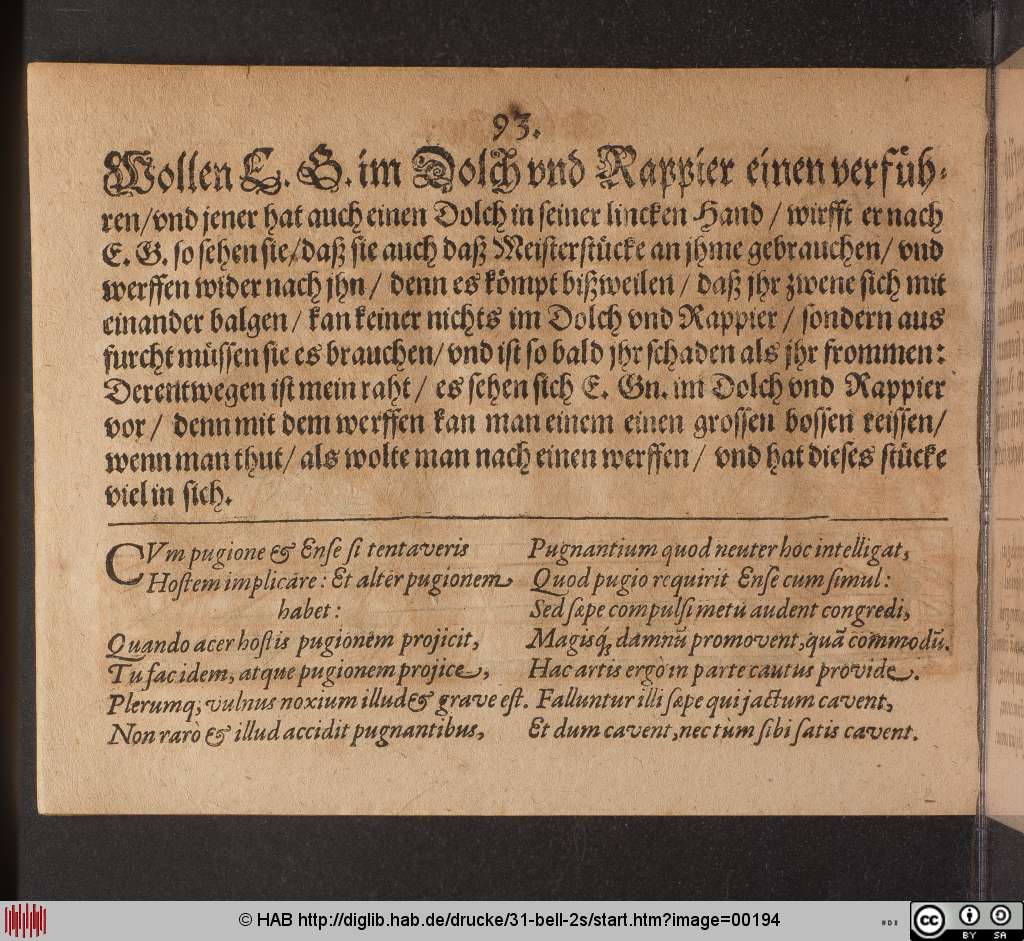 93.
Wollen E. G. im Dolch vnd Rappier einen verfüh⸗
ren/vnd jener hat auch einen Dolch in seiner lincken Hand / wirfft er nach
E. G. so sehen sie/daß sie auch daß Meisterstücke an jhme gebrauchen/ vnd
werffen wider nach jhn / denn es kömpt bißweilen / daß jhr zwene sich mit
einander balgen / kan keiner nichts im Dolch vnd Rappier / sondern aus
furcht müssen sie es brauchen/ vnd ist so bald jhr schaden als jhr frommen:
Derentwegen ist mein raht / es sehen sich E. Gn. im Dolch vnd Rappier
vor / denn mit dem werffen kan man einem einen grossen bossen reissen/
wenn man thut/ als wolte man nach einen werffen / vnd hat dieses stücke
viel in sich.
CVm pugione & Ense si tentaveris
Hostem implicare: Et alter pugionem
habet:
Quando acer hostis pugionem projicit,
Tu fac idem, atque pugionem projice,
Plerumq; vulnus noxium illud & grave est.
Non rarò & illud accidit pugnantibus,
Pugnantium quod neuter hoc intelligat,
Quod pugio requirit Ense cum simul:
Sed sæpe compulsi metu audent congredi,
Magisq́; damnũ promovent, quã commodũ.
Hac artis ergò in parte cautus provide.
Falluntur illi sæpe qui jactum cavent,
Et dum cavent, nec tum sibi satis cavent.
© HAB http://diglib.hab.de/drucke/31-bell-2s/start.htm?image=00194
cc BY SA